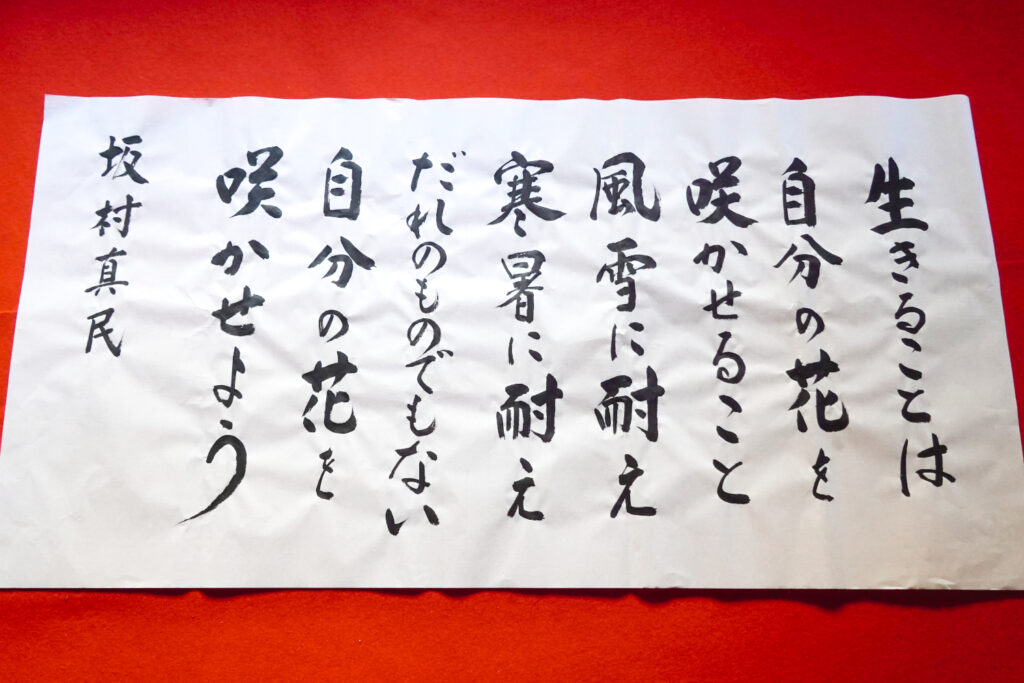 生きることは
自分の花を
咲かせること
風雪に耐え
寒暑に耐え
だれのものでもない
自分の花を
咲かせよう
坂村真民